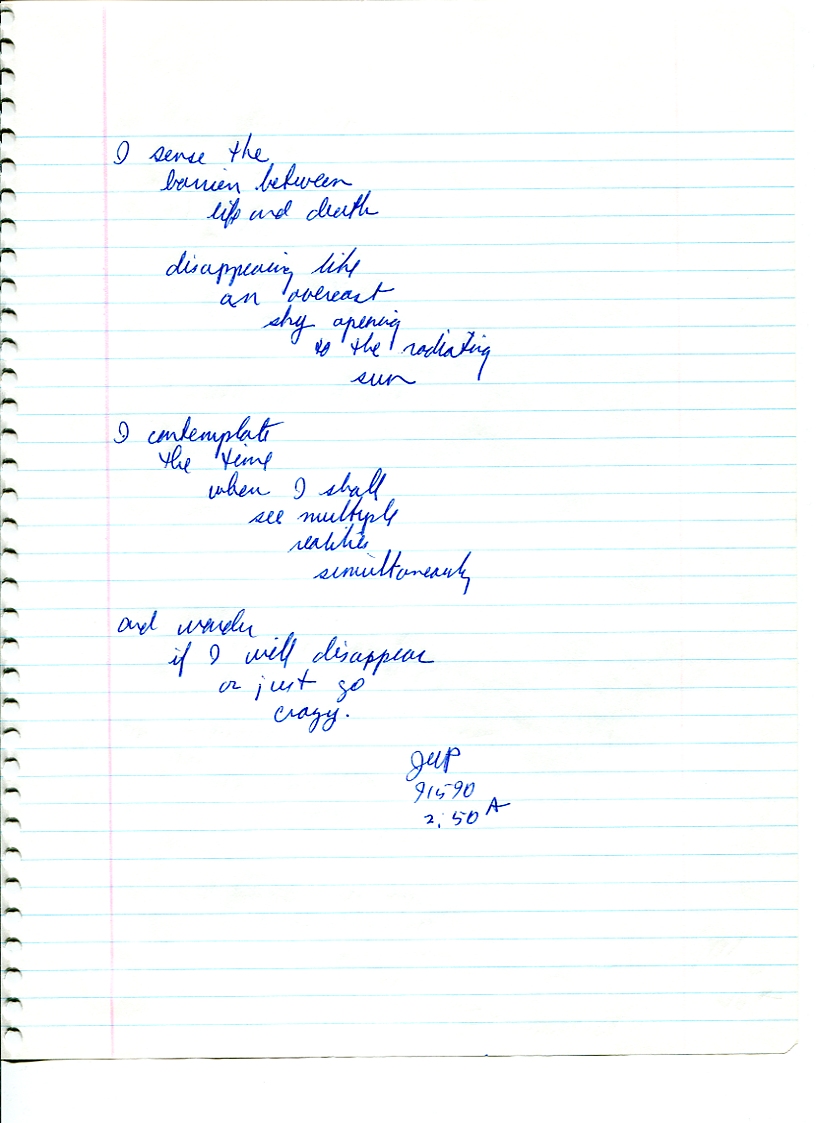 I sense the
barrier between
life and death
disappearing like
an overcast
sky opening
to the radiating
sun
I contemplate
the time
when I shall
see multiple
realities
simultaneously
and wonder
if I will disappear
or just go
crazy.
91590
2:50 A